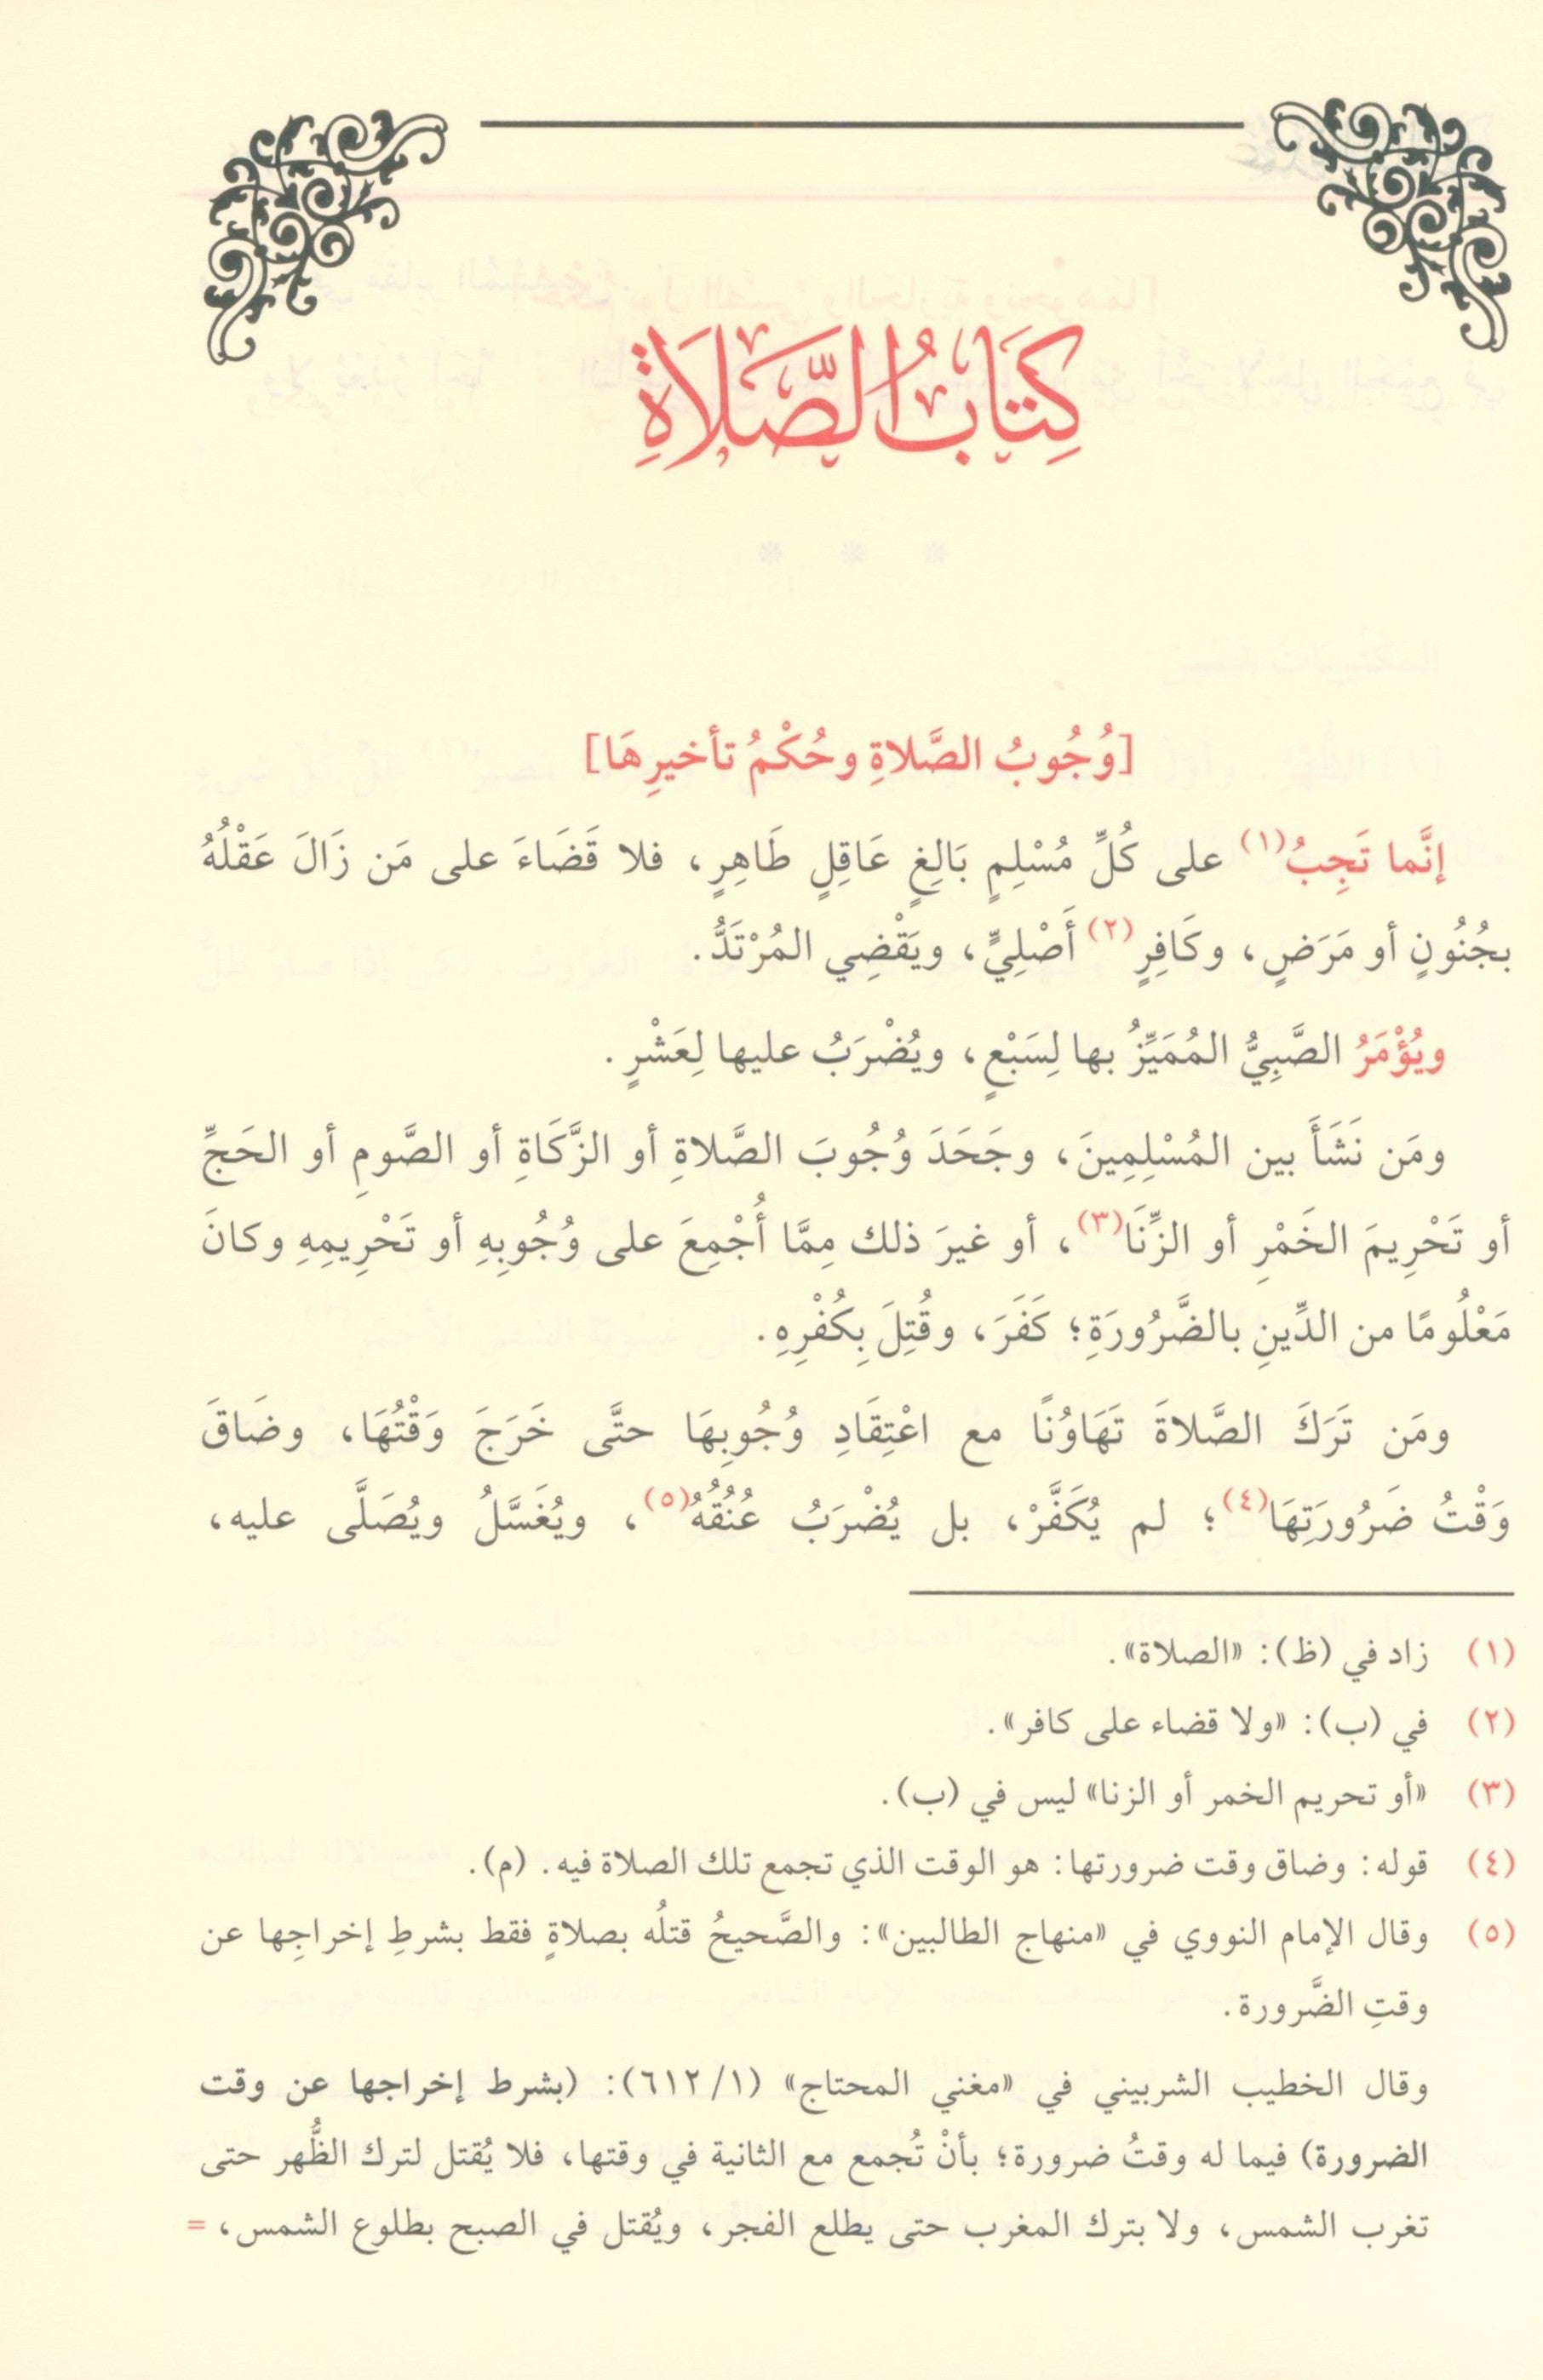 كِتَابُ الصَّلَاةِ
[وُجُوبُ الصَّلاةِ وحُكْمُ تأخيرِهَا]
إنَّما تَجِبُ(١) على كُلِّ مُسْلِمٍ بَالِغٍ عَاقِلٍ طَاهِرٍ، فلا قَضَاءَ على مَن زَالَ عَقْلُهُ
بجُنُونٍ أو مَرَضٍ، وكَافِرٍ(٢) أَصْلِيٍّ، ويَقْضِي المُرْتَدُّ.
ويُؤْمَرُ الصَّبِيُّ المُمَيِّزُ بها لِسَبْعٍ، ويُضْرَبُ عليها لِعَشْرٍ.
ومَن نَشَأَ بين المُسْلِمِينَ، وجَحَدَ وُجُوبَ الصَّلاةِ أو الزَّكَاةِ أو الصَّومِ أو الحَجِّ
أو تَحْرِيمَ الخَمْرِ أو الزِّنَا(٣)، أو غيرَ ذلك مِمَّا أُجْمِعَ على وُجُوبِهِ أو تَحْرِيمِهِ وكانَ
مَعْلُومًا من الدِّينِ بالضَّرُورَةِ؛ كَفَرَ، وقُتِلَ بِكُفْرِهِ.
ومَن تَرَكَ الصَّلاةَ تَهَاوُنًا مع اعْتِقَادِ وُجُوبِهَا حتَّى خَرَجَ وَقْتُهَا، وضَاقَ
وَقْتُ ضَرُورَتِهَا(٤)؛ لم يُكَفَّرْ، بل يُضْرَبُ عُنُقُهُ(٥)، ويُغَسَّلُ ويُصَلَّى عليه،
(١) زاد في (ظ): «الصلاة».
(٢) في (ب): «ولا قضاء على كافر».
(٣) «أو تحريم الخمر أو الزنا» ليس في (ب).
(٤) قوله: وضاق وقت ضرورتها: هو الوقت الذي تجمع تلك الصلاة فيه. (م).
(٥) وقال الإمام النووي في «منهاج الطالبين»: والصَّحيحُ قتلُه بصلاةٍ فقط بشرطِ إخراجِها عن
وقتِ الضَّرورة.
وقال الخطيب الشربيني في «مغني المحتاج» (١/ ٦١٢): (بشرط إخراجها عن وقت
الضرورة) فيما له وقتُ ضرورة؛ بأنْ تُجمع مع الثانية في وقتها، فلا يُقتل لترك الظُّهر حتى
تغرب الشمس، ولا بترك المغرب حتى يطلع الفجر، ويُقتل في الصبح بطلوع الشمس، =